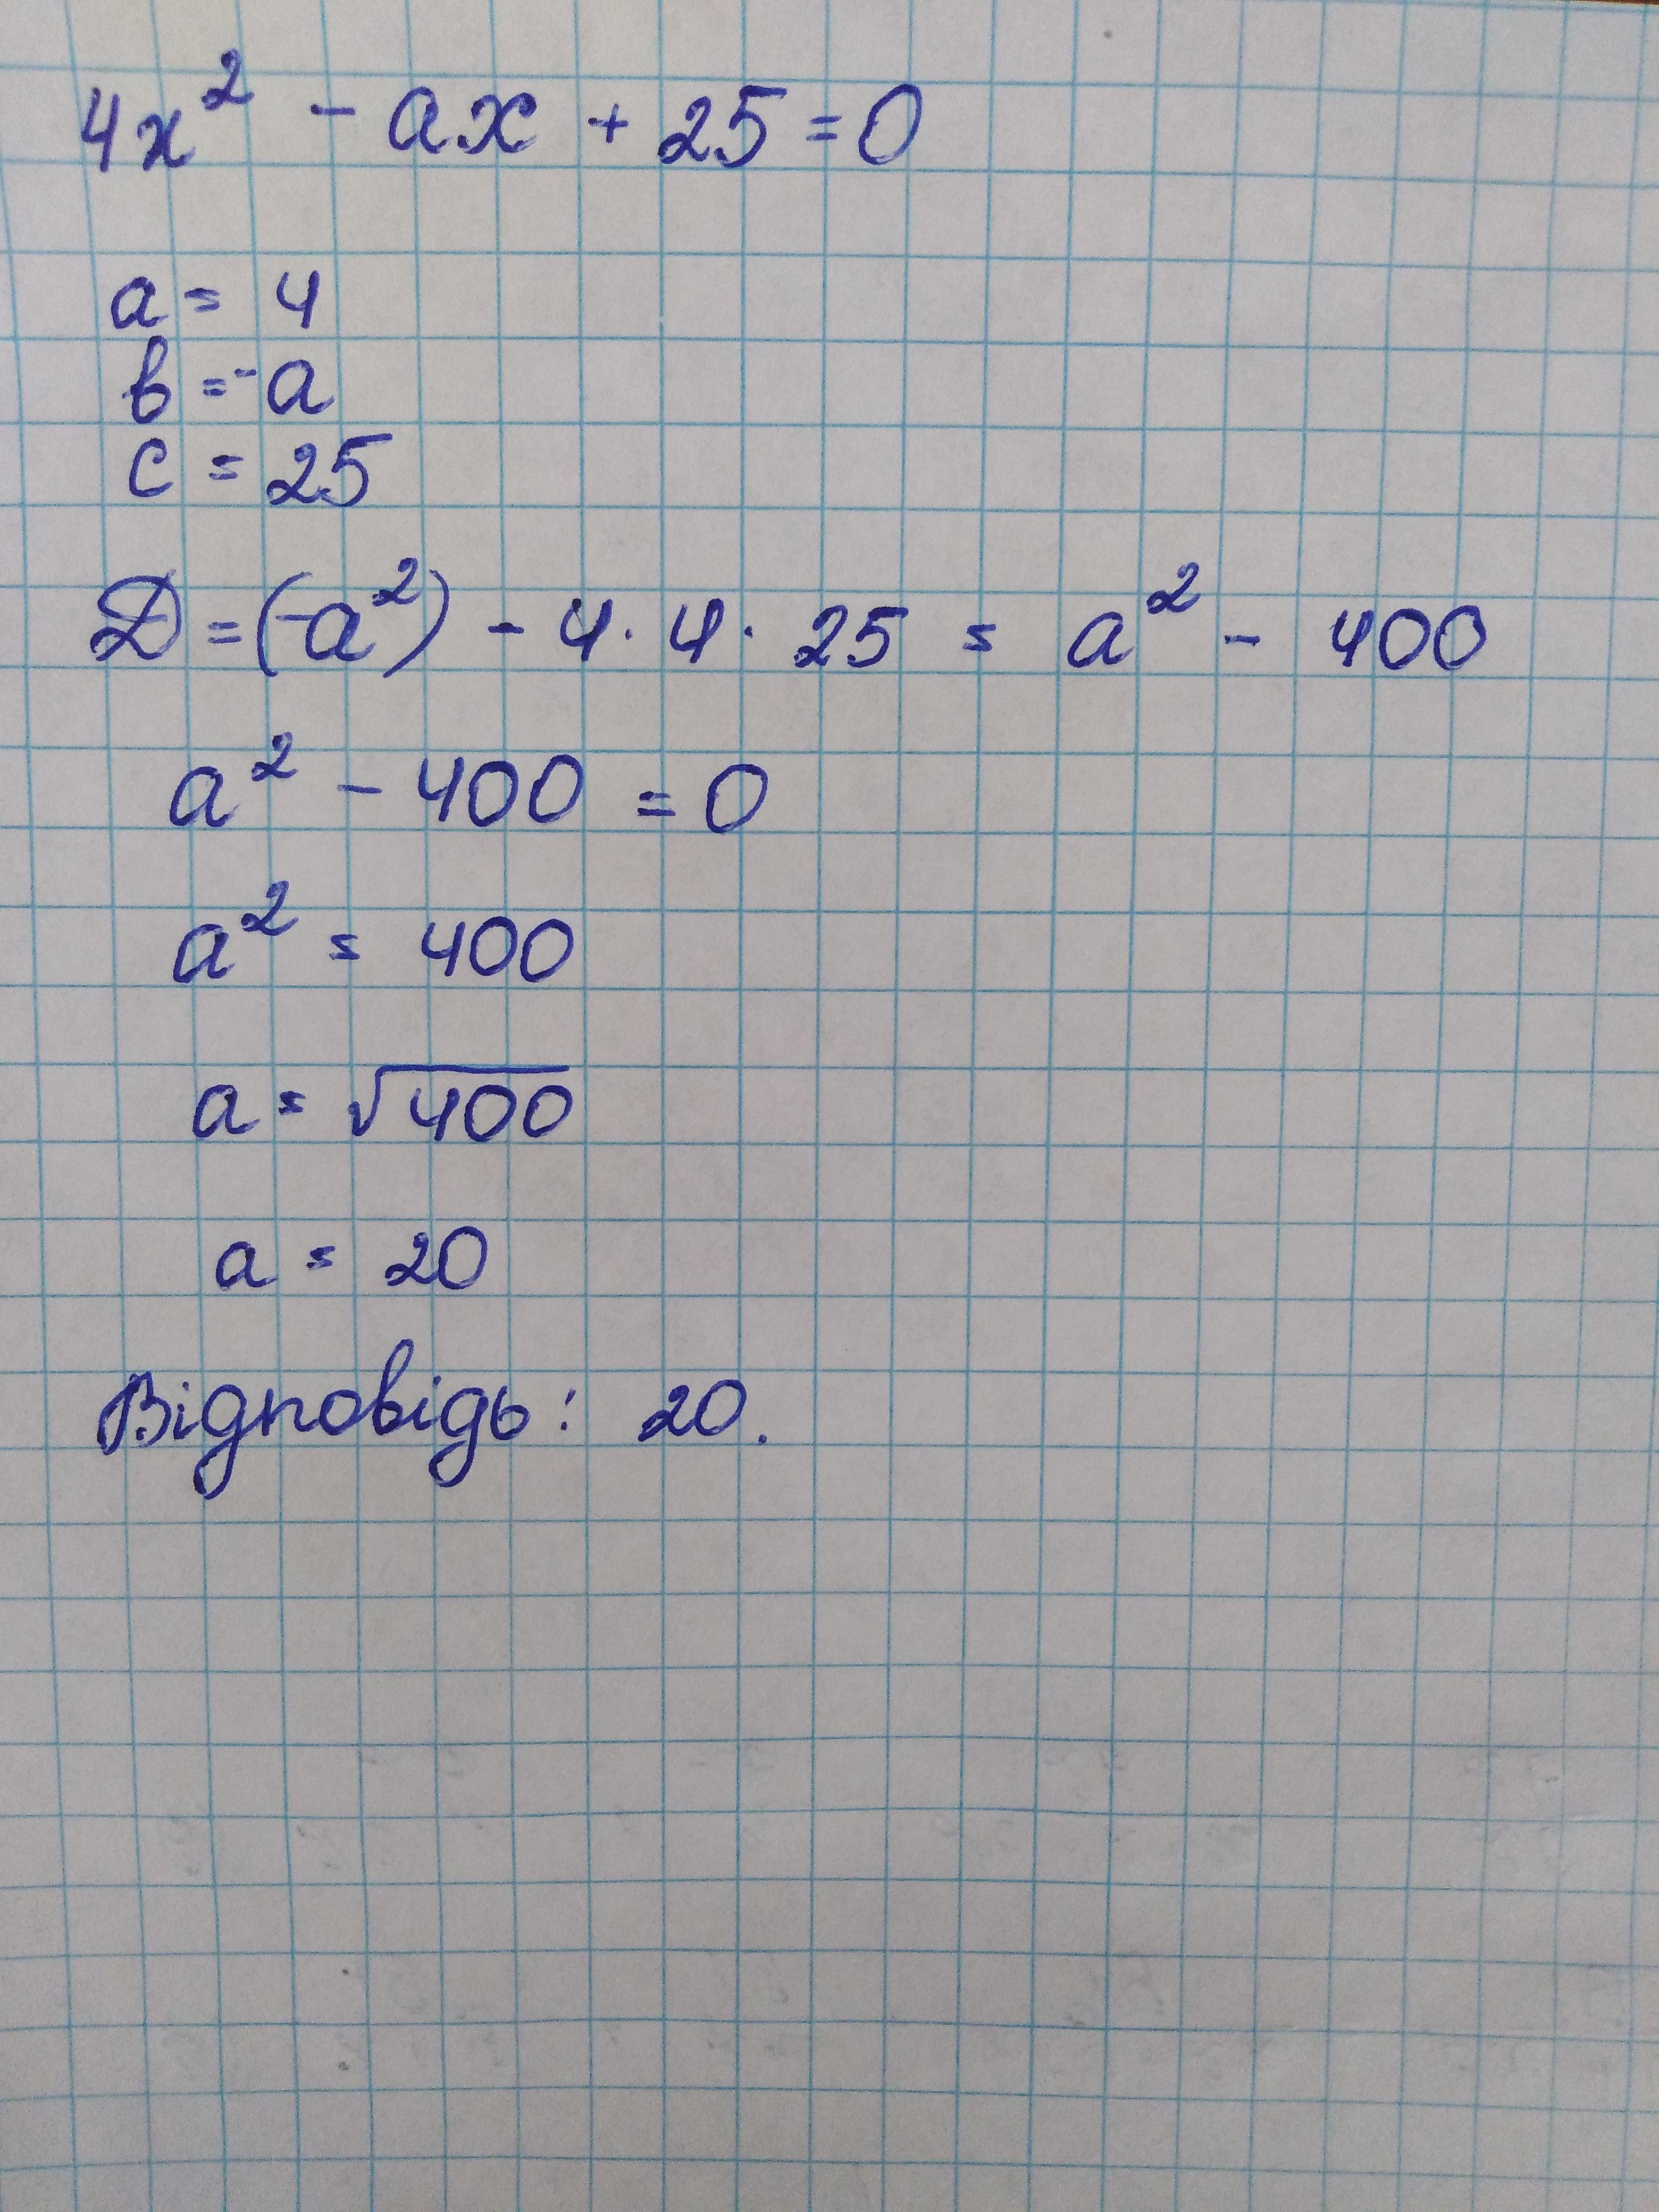 4x² - ax + 25 = 0
a = 4
в = -a
c = 25
D = (-a²) - 4 · 4 · 25 = a² - 400
a² - 400 = 0
a² = 400
a = √400
a = 20
Відповідь: 20.